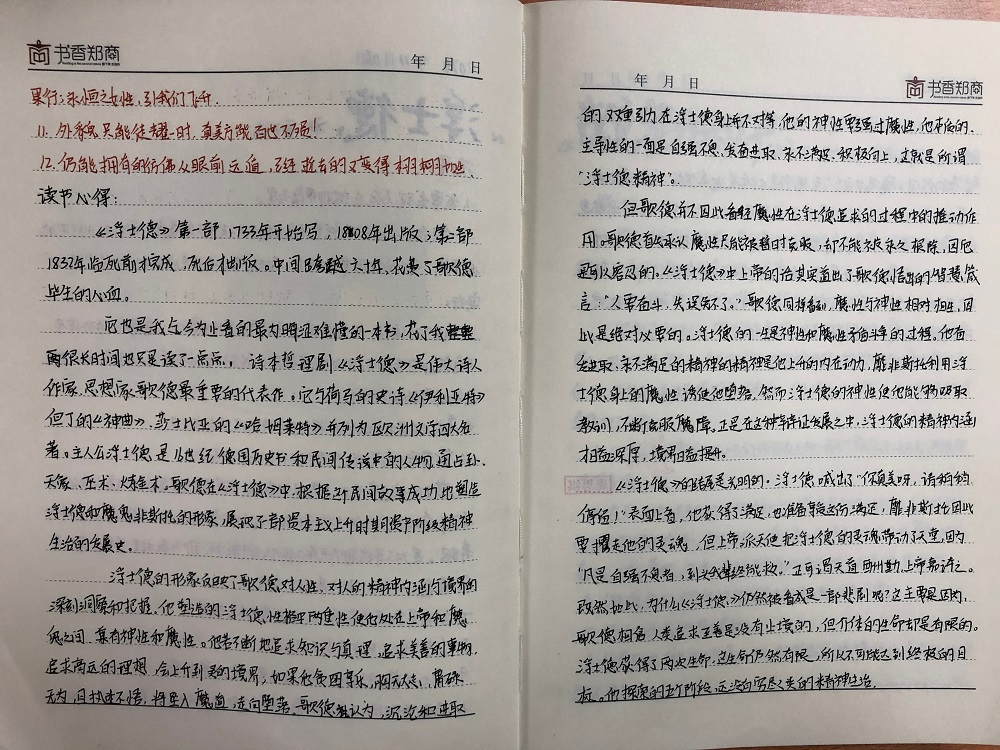 书香郑商
年 月 日
果行;永恒之女性,引我们飞升.
11. 外表只能炫耀一时,真美方能百世不殒!
12. 仍能拥有的仿佛从眼前远遁,已经逝去的又变得栩栩如生.
读书心得:
《浮士德》第一部1733年开始写,1808年出版;第二部
1832年临死前才完成,死后才出版。中间跨越六十年,花费了歌德
毕生的心血。
它也是我至今为止看的最为晦涩难懂的一本书,花了我
两很长时间也只是读了一点点。诗本哲理剧《浮士德》是伟大诗人
作家、思想家歌德最重要的代表作。它与荷马的史诗《伊利亚特》
但丁的《神曲》,莎士比亚的《哈姆莱特》并列为欧洲文学四大名
著。主人公浮士德是16世纪德国历史书和民间传说中的人物,通占卦、
天象、巫术、炼金术。歌德在《浮士德》中,根据这个民间故事成功地塑造
浮士德和魔鬼非斯托的形象,展现了部资本主义上升时期资产阶级精神
生活的发展史。
浮士德的形象反映了歌德对人性、对人的精神内涵与境界的
深刻洞察和把握,他塑造的浮士德性格中两重性使他处在上帝和魔
鬼之间,兼有神性和魔性。他若不断地追求知识与真理,追求美善的事物,
追求高远的理想,会上升到更的境界,如果他贪图享乐,胸无大志,庸碌
无为,且执迷不悟,将坠入魔道,走向堕落。歌德认为,沉沦和进取
年 月 日
书香郑商
的双重引力在浮士德身上并不对等,他的神性要强过魔性,他本质的、
主导性的一面是自强不息、发奋进取、永不满足、积极向上,这就是所谓
"浮士德精神"。
但歌德并不因此看轻魔性在浮士德追求的过程中的推动作
用。歌德首先承认魔性只能被暂时克服,却不能被永久根除,因它
是可以容忍的。《浮士德》中上帝的话其实道出了歌德悟出的智慧箴
言:"人要奋斗,失误免不了。"歌德同样看到,魔性与神性相对相生,因
此是绝对必要的。浮士德的一生是神性和魔性矛盾斗争的过程。他奋
发进取、永不满足的精神的精神是他上升的内在动力,靡非斯托利用浮
士德身上的魔性诱使他堕落,然而浮士德的神性使他能够吸取
教训,不断克服魔障。正是在这种辩证发展之中,浮士德的精神内涵
才日益深厚,境界日益提升。
《浮士德》的结尾是光明的。浮士德喊出了"你真美呀,请稍稍
停留!"表面上看,他获得了满足,也准备享受这份满足,靡非斯托因此
要攫走他的灵魂,但上帝派天使把浮士德的灵魂带去了天堂,因为
"凡是自强不息者,到头我辈终能救。"正可谓天道酬勤,上帝嘉许之。
既然如此,为什么《浮士德》仍然被看成是一部悲剧呢?这主要是因为,
歌德相信人类追求至善是没有止境的,但个体的生命却是有限的。
浮士德获得了两次生命,这生命仍然有限,所以不可能达到终极的目
标。他探索的五个阶段,远没有穷尽人类的精神生活。